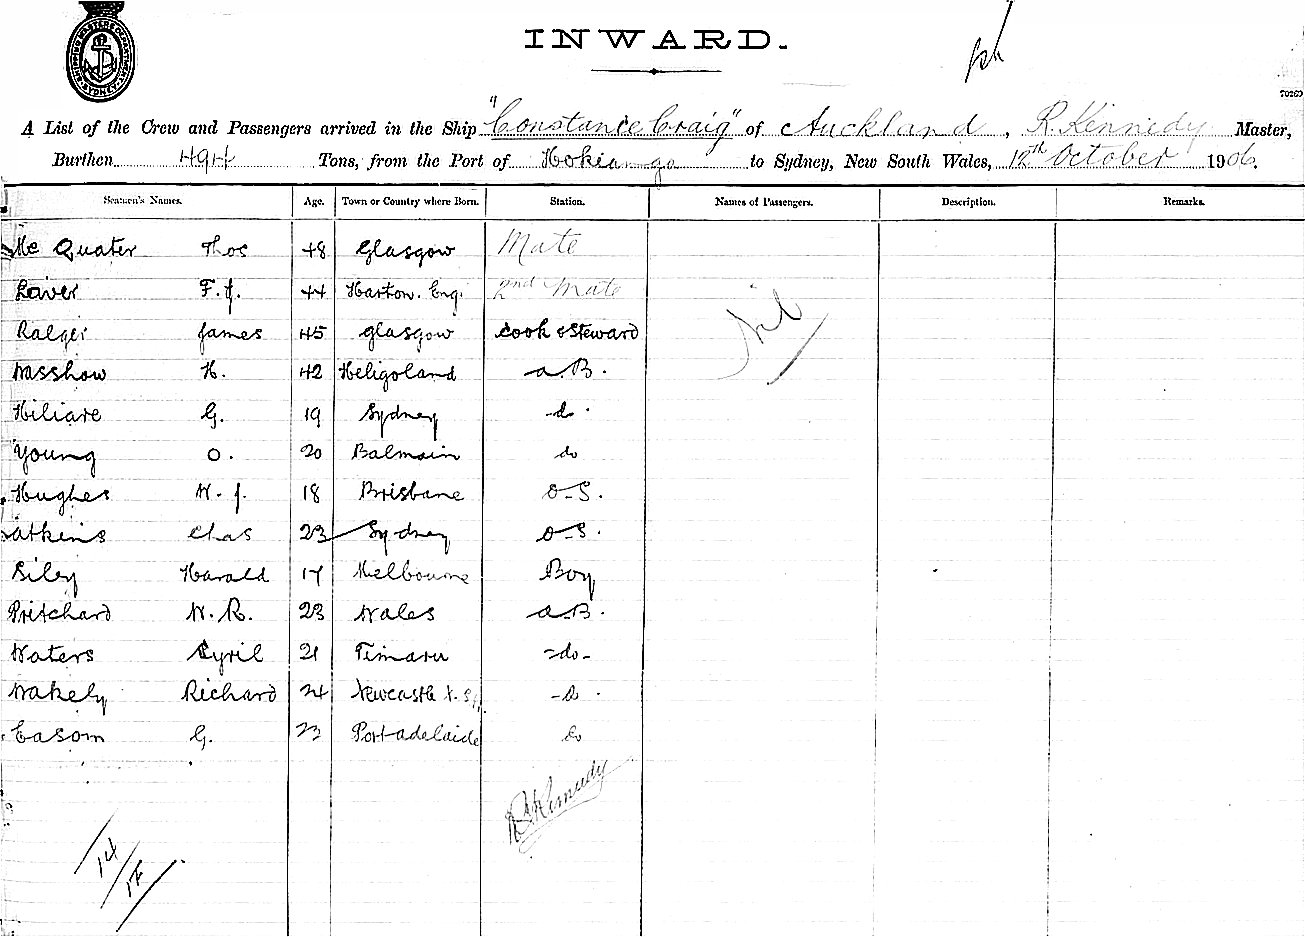 SHIPPING MASTERS DEPARTMENT SYDNEY
INWARD.
70269
A List of the Crew and Passengers arrived in the Ship "Constance Craig" of Auckland, R. Kennedy Master,
Burthen 494 Tons, from the Port of Hokianga to Sydney, New South Wales, 12th October 1906.
Seamen's Names. Age. Town or Country where Born. Station. Names of Passengers. Description. Remarks.
Mc Quater Thos 48 Glasgow Mate
Laver F. J. 44 Harton. Eng. 2nd Mate
Nil
Ralger James 45 Glasgow Cook & Steward
Wasshow H. 42 Heligoland A.B.
Hiliare G. 19 Sydney do
Young O. 20 Balmain do
Hughes W. J. 18 Brisbane O.S.
Atkins Chas 23 Sydney O.S.
Siley Harald 17 Melbourne Boy
Pritchard W. R. 23 Wales A.B.
Waters Cyril 21 Timaru -do-
Wakely Richard 24 Newcastle N.S.W. do
Eason G. 23 Port Adelaide do
R. Kennedy
14